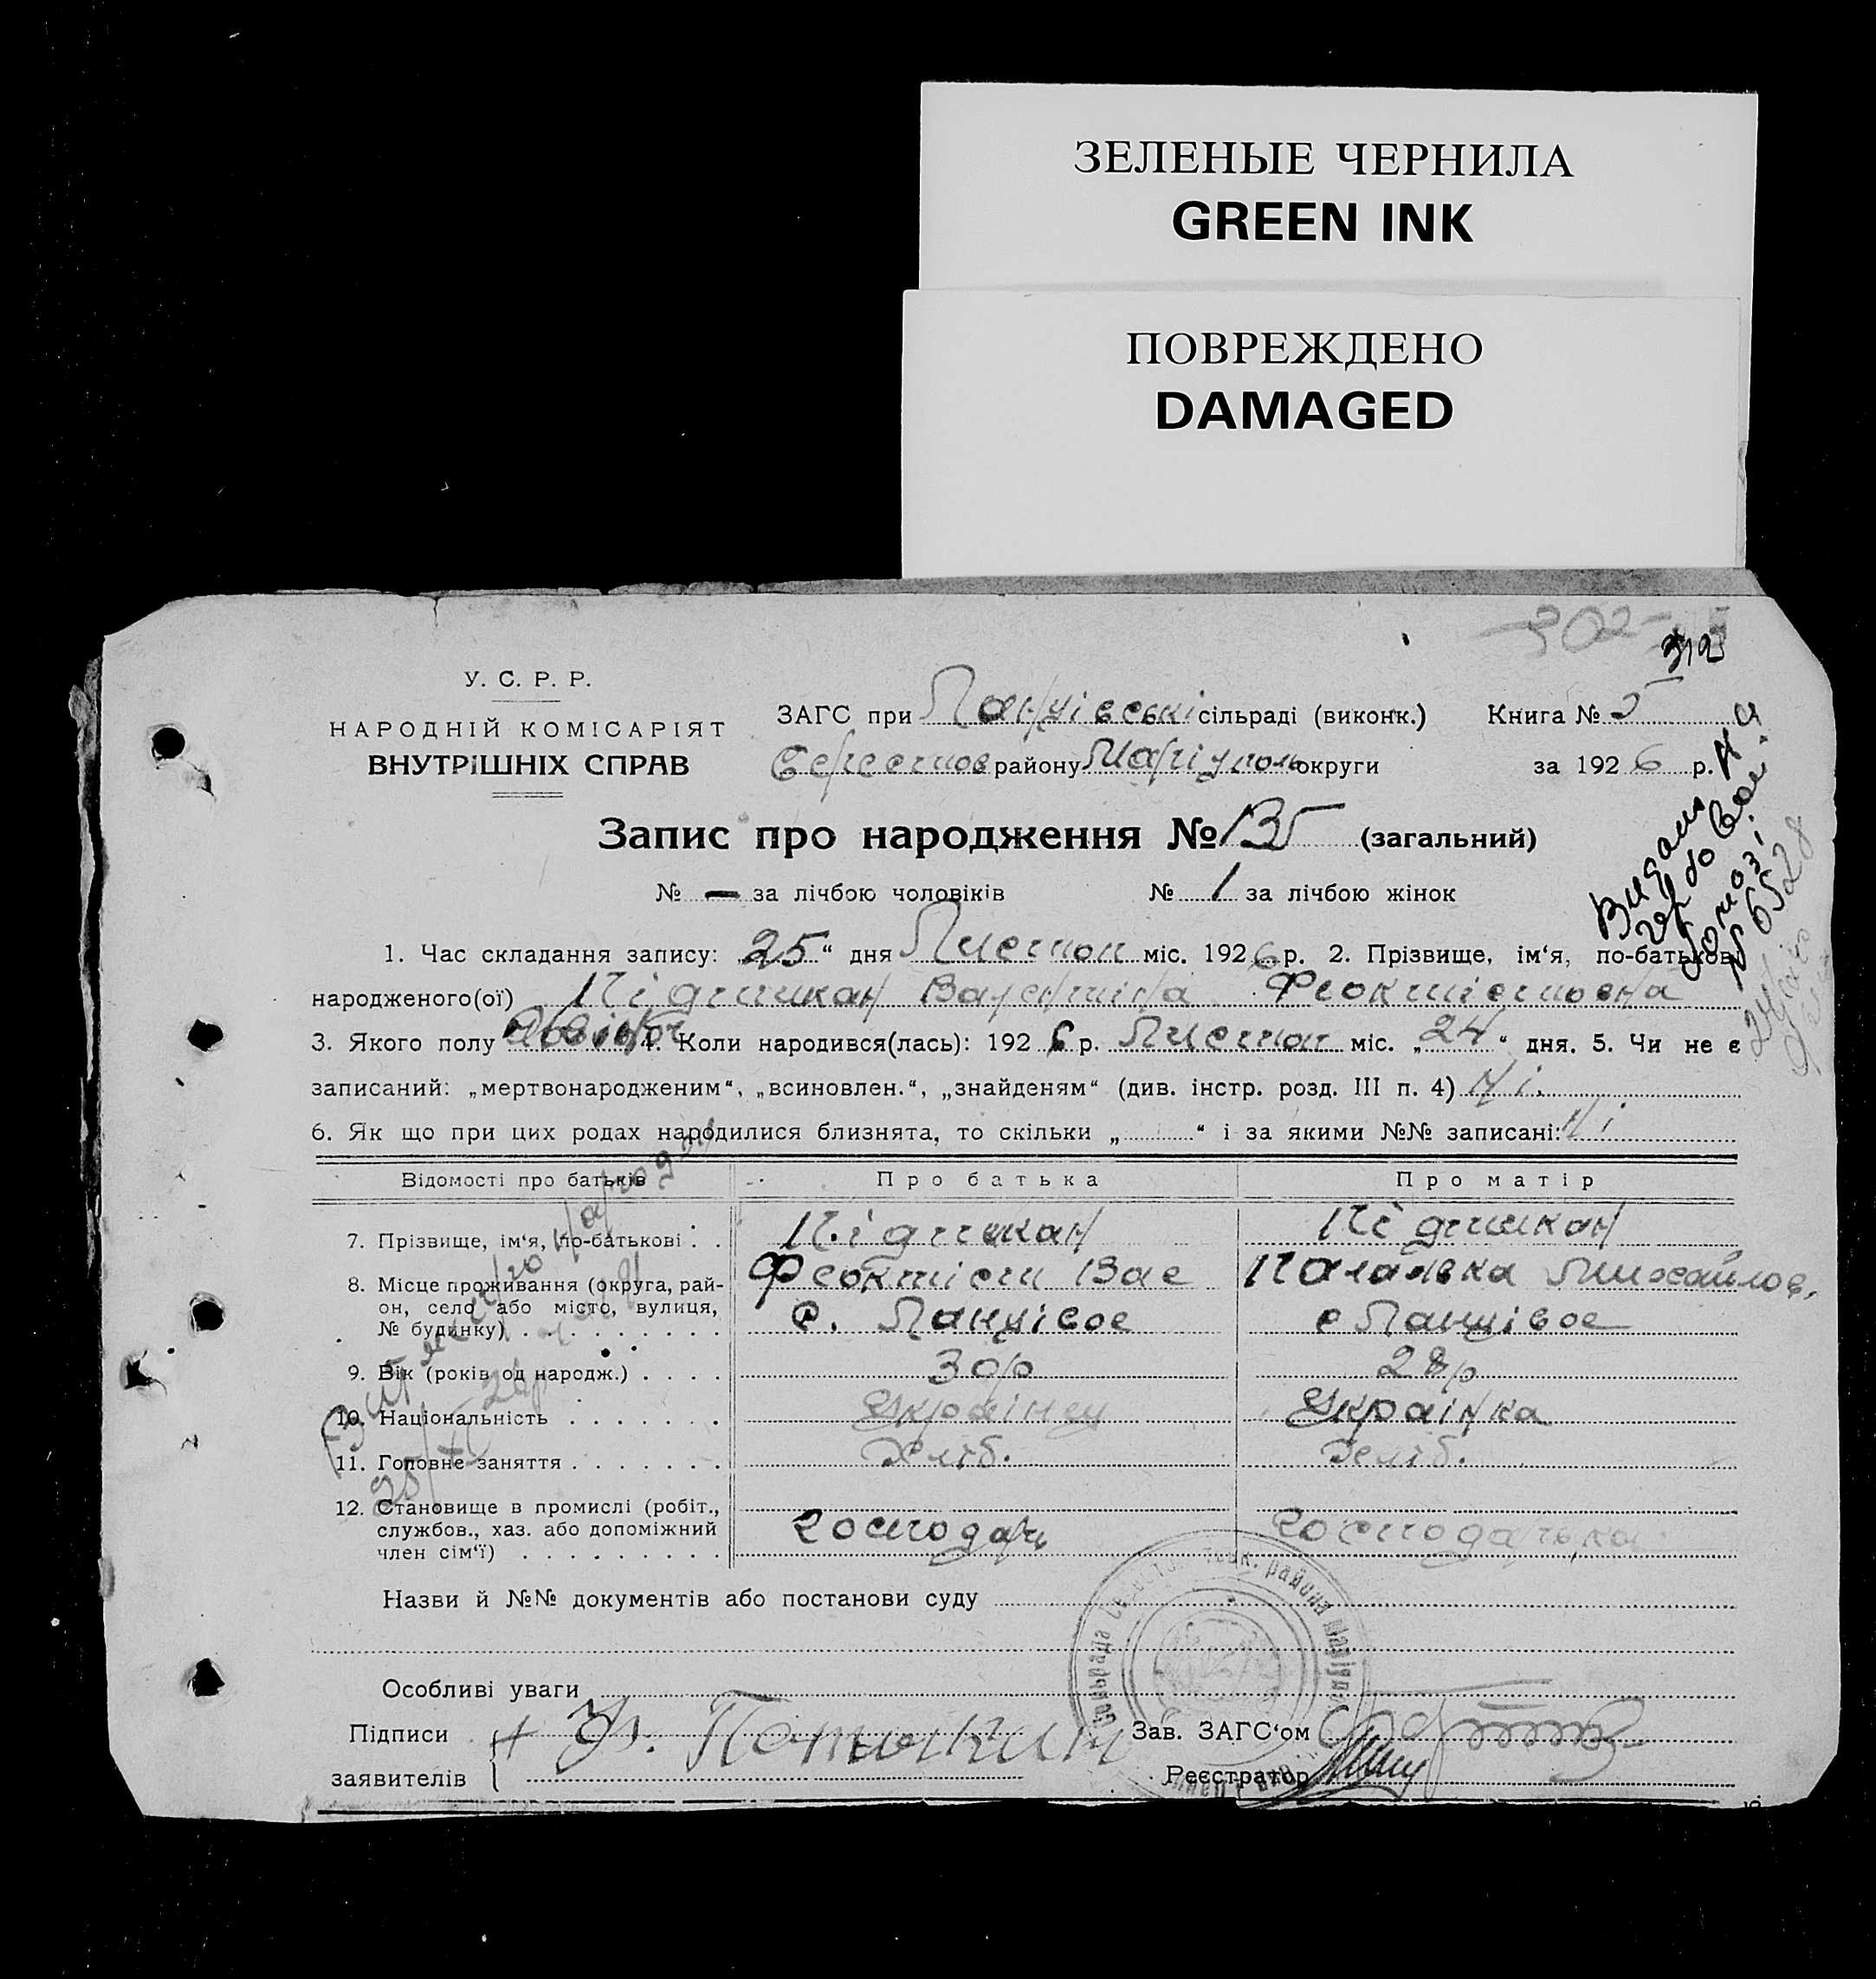 ЗЕЛЕНЫЕ ЧЕРНИЛА
GREEN INK
ПОВРЕЖДЕНО
DAMAGED
302
312
У. С. Р. Р.
НАРОДНІЙ КОМІСАРІЯТ
ВНУТРІШНІХ СПРАВ
ЗАГС при Ланцівські сільраді (виконк.) Книга № 5
району Маріуполь округи за 1926 р.
Запис про народження № 135 (загальний)
№ — за лічбою чоловіків № 1 за лічбою жінок
1. Час складання запису: „25“ дня Листоп міс. 1926 р. 2. Прізвище, ім‘я, по-батькові
народженого(ої) Підпикан Валентина Феоктистовна
3. Якого полу 4. Коли народився(лась): 1926 р. Листоп міс. „24“ дня. 5. Чи не є
записаний: „мертвонародженим“, „всиновлен.“, „знайденям“ (див. інстр. розд. III п. 4) Ні.
6. Як що при цих родах народилися близнята, то скільки „ “ і за якими №№ записані: Ні
Відомості про батьків Про батька Про матір
7. Прізвище, ім‘я, по-батькові . . Підпикан Підпикан
8. Місце проживання (округа, рай-
он, село або місто, вулиця,
№ будинку) . . . . . . . . .
Феоктист Вас Палажка Михайлов.
с. Ланцівое с Ланцівое
9. Вік (років од народж.) . . . . 30 р 28 р
10. Національність . . . . . . . Українец Українка
11. Головне заняття . . . . . . . Хліб. Хліб.
12. Становище в промислі (робіт.,
службов., хаз. або допоміжний
член сім‘ї) . . . . . . . . .
господарь господарька
Назви й №№ документів або постанови суду
Особливі уваги
Підписи
заявителів
Зав. ЗАГС‘ом
Реєстратор
Видано
№ 6528